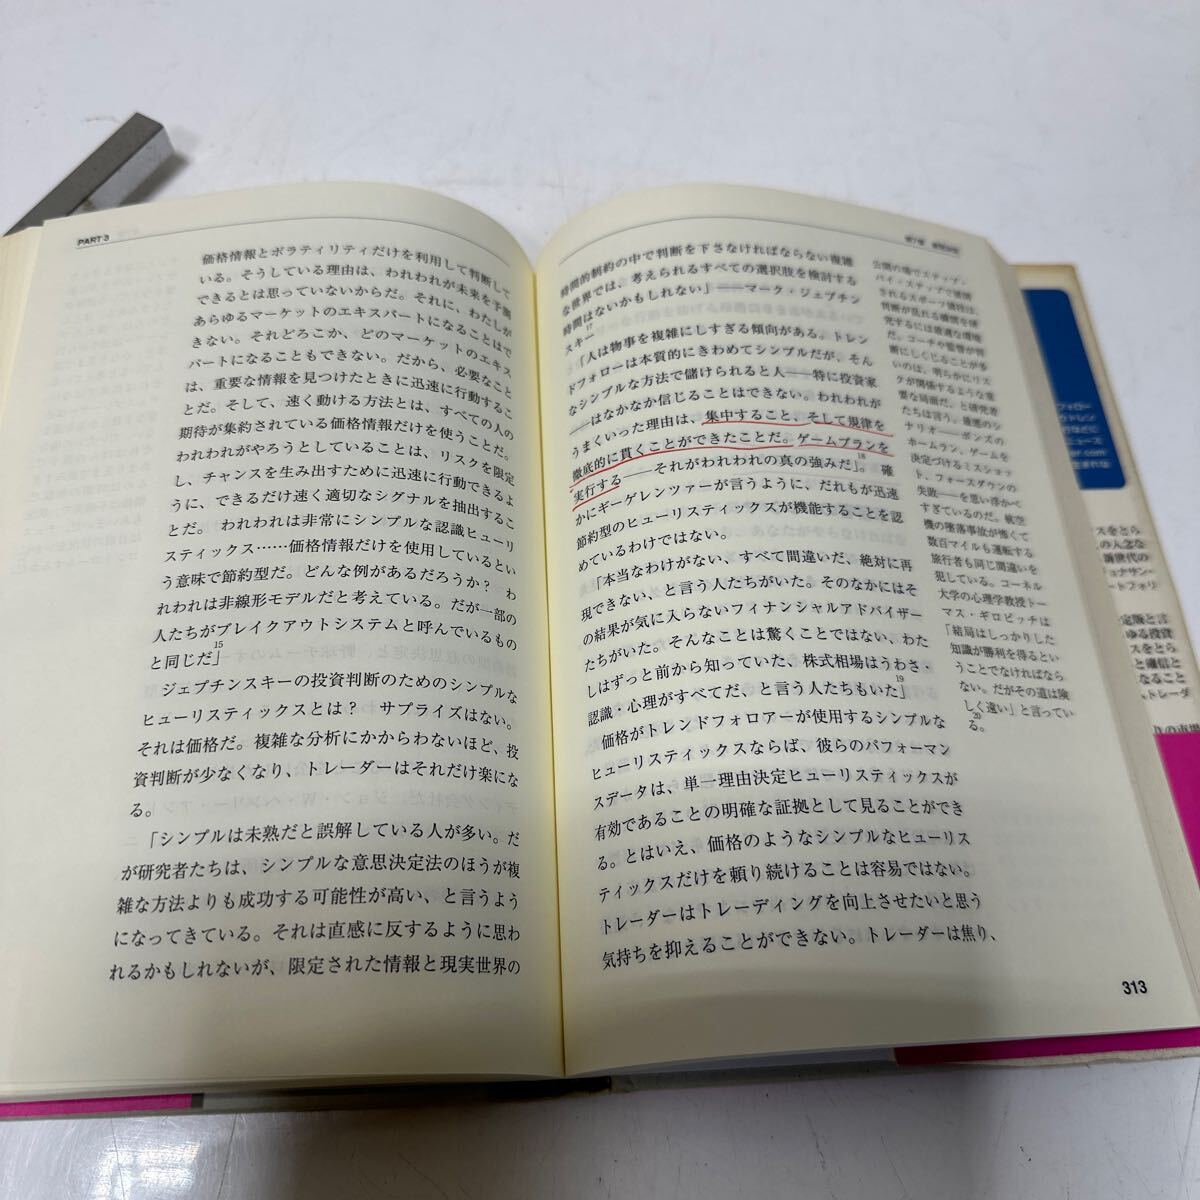 PART 3
価格情報とボラティリティだけを利用して判断して
いる。そうしている理由は、われわれが未来を予測
できるとは思っていないからだ。それに、わたしが
あらゆるマーケットのエキスパートになることはで
きない。それどころか、どのマーケットのエキス
パートになることもできない。だから、必要なこと
は、重要な情報を見つけたときに迅速に行動するこ
とだ。そして、速く動ける方法とは、すべての人の
期待が集約されている価格情報だけを使うことだ。
われわれがやろうとしていることは、リスクを限定
し、チャンスを生み出すために迅速に行動できるよ
うに、できるだけ速く適切なシグナルを抽出するこ
とだ。 われわれは非常にシンプルな認識ヒューリ
スティックス……価格情報だけを使用しているとい
う意味で節約型だ。どんな例があるだろうか? わ
れわれは非線形モデルだと考えている。だが一部の
人たちがブレイクアウトシステムと呼んでいるもの
と同じだ」15
ジェプチンスキーの投資判断のためのシンプルな
ヒューリスティックスとは? サプライズはない。
それは価格だ。複雑な分析にかからわないほど、投
資判断が少なくなり、トレーダーはそれだけ楽にな
る。
「シンプルは未熟だと誤解している人が多い。だ
が研究者たちは、シンプルな意思決定法のほうが複
雑な方法よりも成功する可能性が高い、と言うよう
になってきている。それは直感に反するように思わ
れるかもしれないが、限定された情報と現実世界の
時間的制約の中で判断を下さなければならない複雑
な世界では、考えられるすべての選択肢を検討する
時間はないかもしれない」――マーク・ジェプチン
スキー17
「人は物事を複雑にしすぎる傾向がある。トレン
ドフォローは本質的にきわめてシンプルだが、そん
なシンプルな方法で儲けられると人――特に投資家
――はなかなか信じることはできない。われわれが
うまくいった理由は、集中すること、そして規律を
徹底的に貫くことができたことだ。ゲームプランを
実行する――それがわれわれの真の強みだ」18。確
かにギーゲレンツァーが言うように、だれもが迅速
節約型のヒューリスティックスが機能することを認
めているわけではない。
「本当なわけがない、すべて間違いだ、絶対に再
現できない、と言う人たちがいた。そのなかにはそ
の結果が気に入らないフィナンシャルアドバイザー
たちがいた。そんなことは驚くことではない、わた
しはずっと前から知っていた、株式相場はうわさ・
認識・心理がすべてだ、と言う人たちもいた」19
価格がトレンドフォロアーが使用するシンプルな
ヒューリスティックスならば、彼らのパフォーマン
スデータは、単一理由決定ヒューリスティックスが
有効であることの明確な証拠として見ることができ
る。とはいえ、価格のようなシンプルなヒューリス
ティックスだけを頼り続けることは容易ではない。
トレーダーはトレーディングを向上させたいと思う
気持ちを抑えることができない。トレーダーは焦り、
公開の場でステップ・
バイ・ステップで展開
されるスポーツ競技は、
判断が乱れる瞬間を研
究するには最適な環境
だ。コーチや監督が判
断にしくじることが多
いのは、明らかにリス
クが関係するような重
要な局面だ。と研究者
たちは言う。最悪のシ
ナリオ――ボンズの
ホームラン、ゲームを
決定づけるミスショッ
ト、フォースダウンの
失敗――を思い浮かべ
すぎているのだ。航空
機の墜落事故が怖くて
数百マイルも運転する
旅行者も同じ間違いを
犯している。コーネル
大学の心理学教授トー
マス・ギロビッチは
「結局はしっかりした
知識が勝利を得るとい
うことでなければなら
ない。だがその道は険
しく遠い」と言ってい
る。20
313